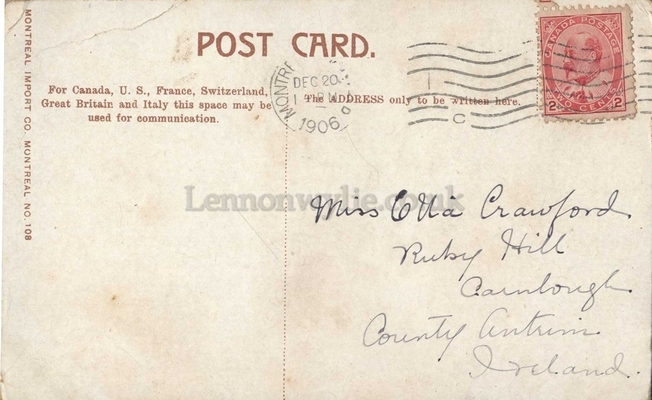 POST CARD.
For Canada, U. S., France, Switzerland,
Great Britain and Italy this space may be
used for communication.
The ADDRESS only to be written here.
MONTREAL IMPORT CO. MONTREAL NO. 108
DEC 20
1906
C
CANADA POSTAGE
2 CENTS 2
Lennonwylie.co.uk
Miss Etta Crawford
Ruby Hill
Carnlough
County Antrim
Ireland.